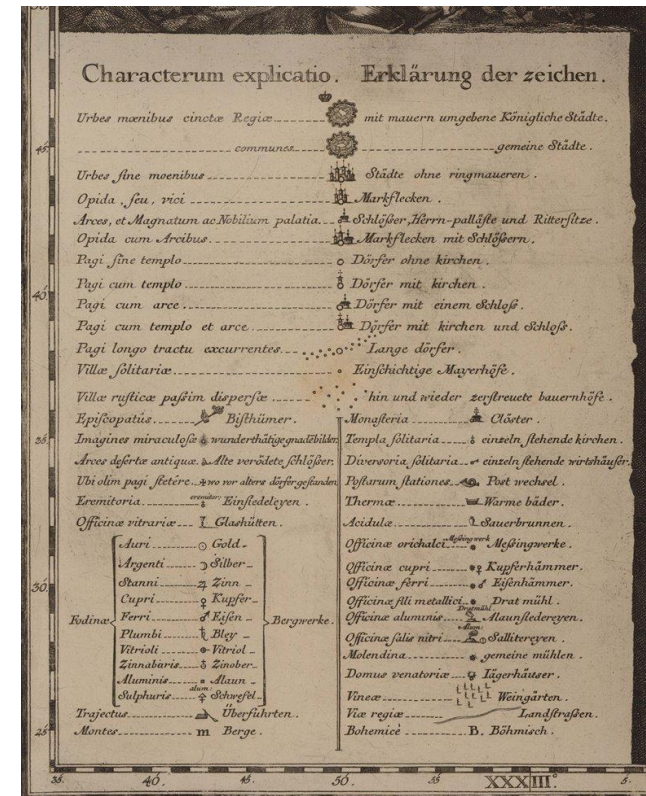 Characterum explicatio. Erklärung der zeichen.
Urbes mœnibus cinctæ Regiæ mit mauern umgebene Königliche Städte.
communes gemeine Städte.
Urbes sine moenibus Städte ohne ringmaueren.
Opida, seu, vici Markflecken.
Arces, et Magnatum ac Nobilium palatia. Schlößer, Herrn-palläste und Rittersitze.
Opida cum Arcibus Markflecken mit Schlößern.
Pagi sine templo Dörfer ohne kirchen.
Pagi cum templo Dörfer mit kirchen.
Pagi cum arce Dörfer mit einem Schloß.
Pagi cum templo et arce Dörfer mit kirchen und Schloß.
Pagi longo tractu excurrentes Lange dörfer.
Villæ solitariæ Einschichtige Mayerhöfe.
Villæ rusticæ passim dispersæ hin und wieder zerstreuete bauernhöfe.
Episcopatûs Bisthümer.
Imagines miraculosæ wunderthätige gnadebilder.
Arces desertæ antiquæ. Alte verödete schlößer.
Ubi olim pagi stetére wo vor alters dörfer gestanden
Eremitoria Einsiedeleyen.
Officinæ vitrariæ Glashütten.
Fodinæ
Auri Gold
Argenti Silber
Stanni Zinn
Cupri Kupfer
Ferri Eisen
Plumbi Bley
Vitrioli Vitriol
Zinnabaris Zinober
Aluminis Alaun
alum
Sulphuris Schwefel
Bergwerke.
Trajectus Überfuhrten.
Montes m Berge.
Monasteria Clöster.
Templa solitaria einzeln stehende kirchen.
Diversoria solitaria einzeln stehende wirtshäuser.
Postarum stationes Post wechsel.
Thermæ Warme bäder.
Acidulæ Sauerbrunnen.
Officinæ orichalci Meßingwerk Meßingwerke.
Officinæ cupri Kupferhämmer.
Officinæ ferri Eisenhämmer.
Officinæ fili metallici Drat mühl.
Dratmühl
Officinæ aluminis Alaunsiedereyen.
Alaun
Officinæ salis nitri Sallitereyen.
Molendina gemeine mühlen.
Domus venatoriæ Jägerhäuser.
Vineæ Weingärten.
Viæ regiæ Landstraßen.
Bohemicè B. Böhmisch.
45.
40.
35.
30.
25.
35. 40. 45. 50. 55 XXXIII° 5.